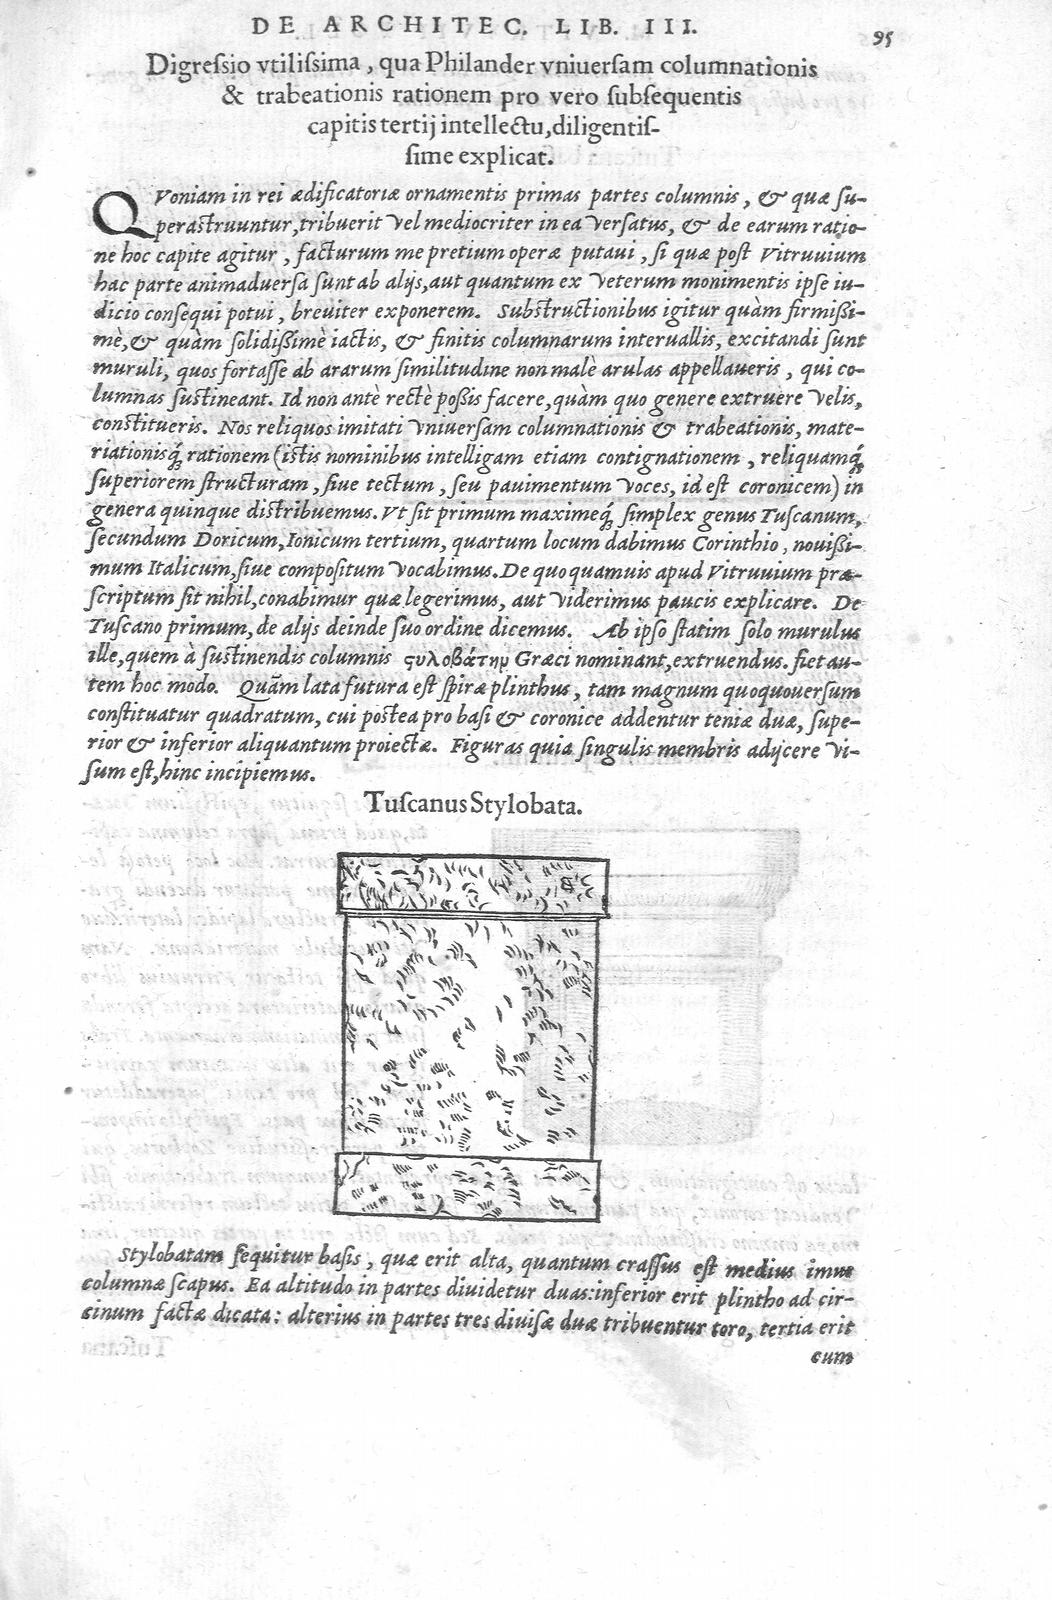 DE ARCHITEC. LIB. III.
95
Digreſsio vtiliſsima, qua Philander vniuerſam columnationis
& trabeationis rationem pro vero ſubſequentis
capitis tertij intellectu, diligentiſ-
ſime explicat.
QVoniam in rei ædificatoriæ ornamentis primas partes columnis, & quæ ſu-
peraſtruuntur, tribuerit vel mediocriter in ea verſatus, & de earum ratio-
ne hoc capite agitur, facturum me pretium operæ putaui, ſi quæ poſt Vitruuium
hac parte animaduerſa ſunt ab alijs, aut quantum ex veterum monimentis ipſe iu-
dicio conſequi potui, breuiter exponerem. Subſtructionibus igitur quàm firmißi-
mè, & quàm ſolidißimè iactis, & finitis columnarum interuallis, excitandi ſunt
muruli, quos fortaſſe ab ararum ſimilitudine non malè arulas appellaueris, qui co-
lumnas ſuſtineant. Id non antè rectè poßis facere, quàm quo genere extruere velis,
conſtitueris. Nos reliquos imitati vniuerſam columnationis & trabeationis, mate-
riationisq́; rationem (iſtis nominibus intelligam etiam contignationem, reliquamq́;
ſuperiorem ſtructuram, ſiue tectum, ſeu pauimentum voces, id eſt coronicem) in
genera quinque diſtribuemus. Vt ſit primum maximeq́; ſimplex genus Tuſcanum,
ſecundum Doricum, Ionicum tertium, quartum locum dabimus Corinthio, nouißi-
mum Italicum, ſiue compoſitum vocabimus. De quo quamuis apud Vitruuium præ-
ſcriptum ſit nihil, conabimur quæ legerimus, aut viderimus paucis explicare. De
Tuſcano primum, de alijs deinde ſuo ordine dicemus. Ab ipſo ſtatim ſolo murulus
ille, quem à ſuſtinendis columnis ϛυλοβάτην Græci nominant, extruendus. fiet au-
tem hoc modo. Quàm lata futura eſt ſpiræ plinthus, tam magnum quoquouerſum
conſtituatur quadratum, cui poſtea pro baſi & coronice addentur teniæ duæ, ſupe-
rior & inferior aliquantum proiectæ. Figuras quia ſingulis membris adijcere vi-
ſum eſt, hinc incipiemus.
Tuſcanus Stylobata.
Stylobatam ſequitur baſis, quæ erit alta, quantum craſſus eſt medius imus
columnæ ſcapus. Ea altitudo in partes diuidetur duas: inferior erit plintho ad cir-
cinum factæ dicata: alterius in partes tres diuiſæ duæ tribuentur toro, tertia erit
cum